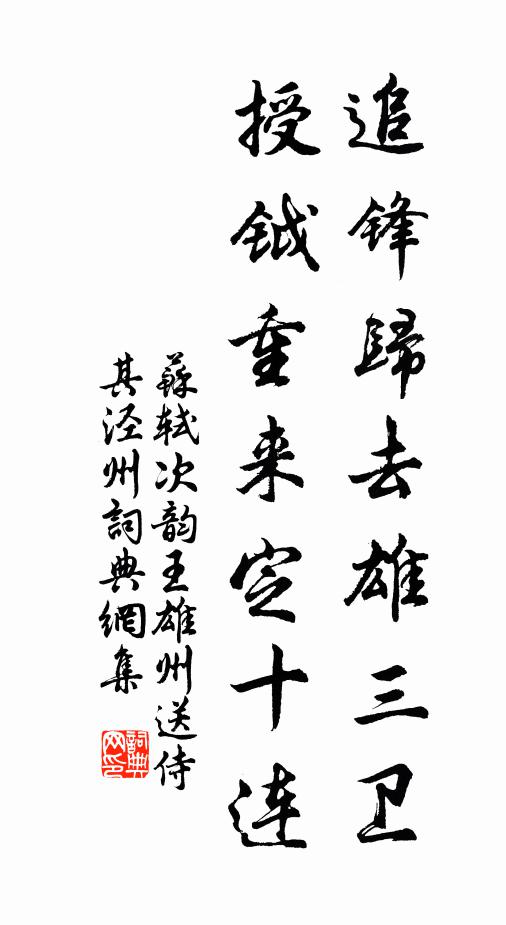 追锋歸去雄三卫
授钺重来定十连
蘇轼次韵王雄州送侍
其泾州詞典網集
詞典網印